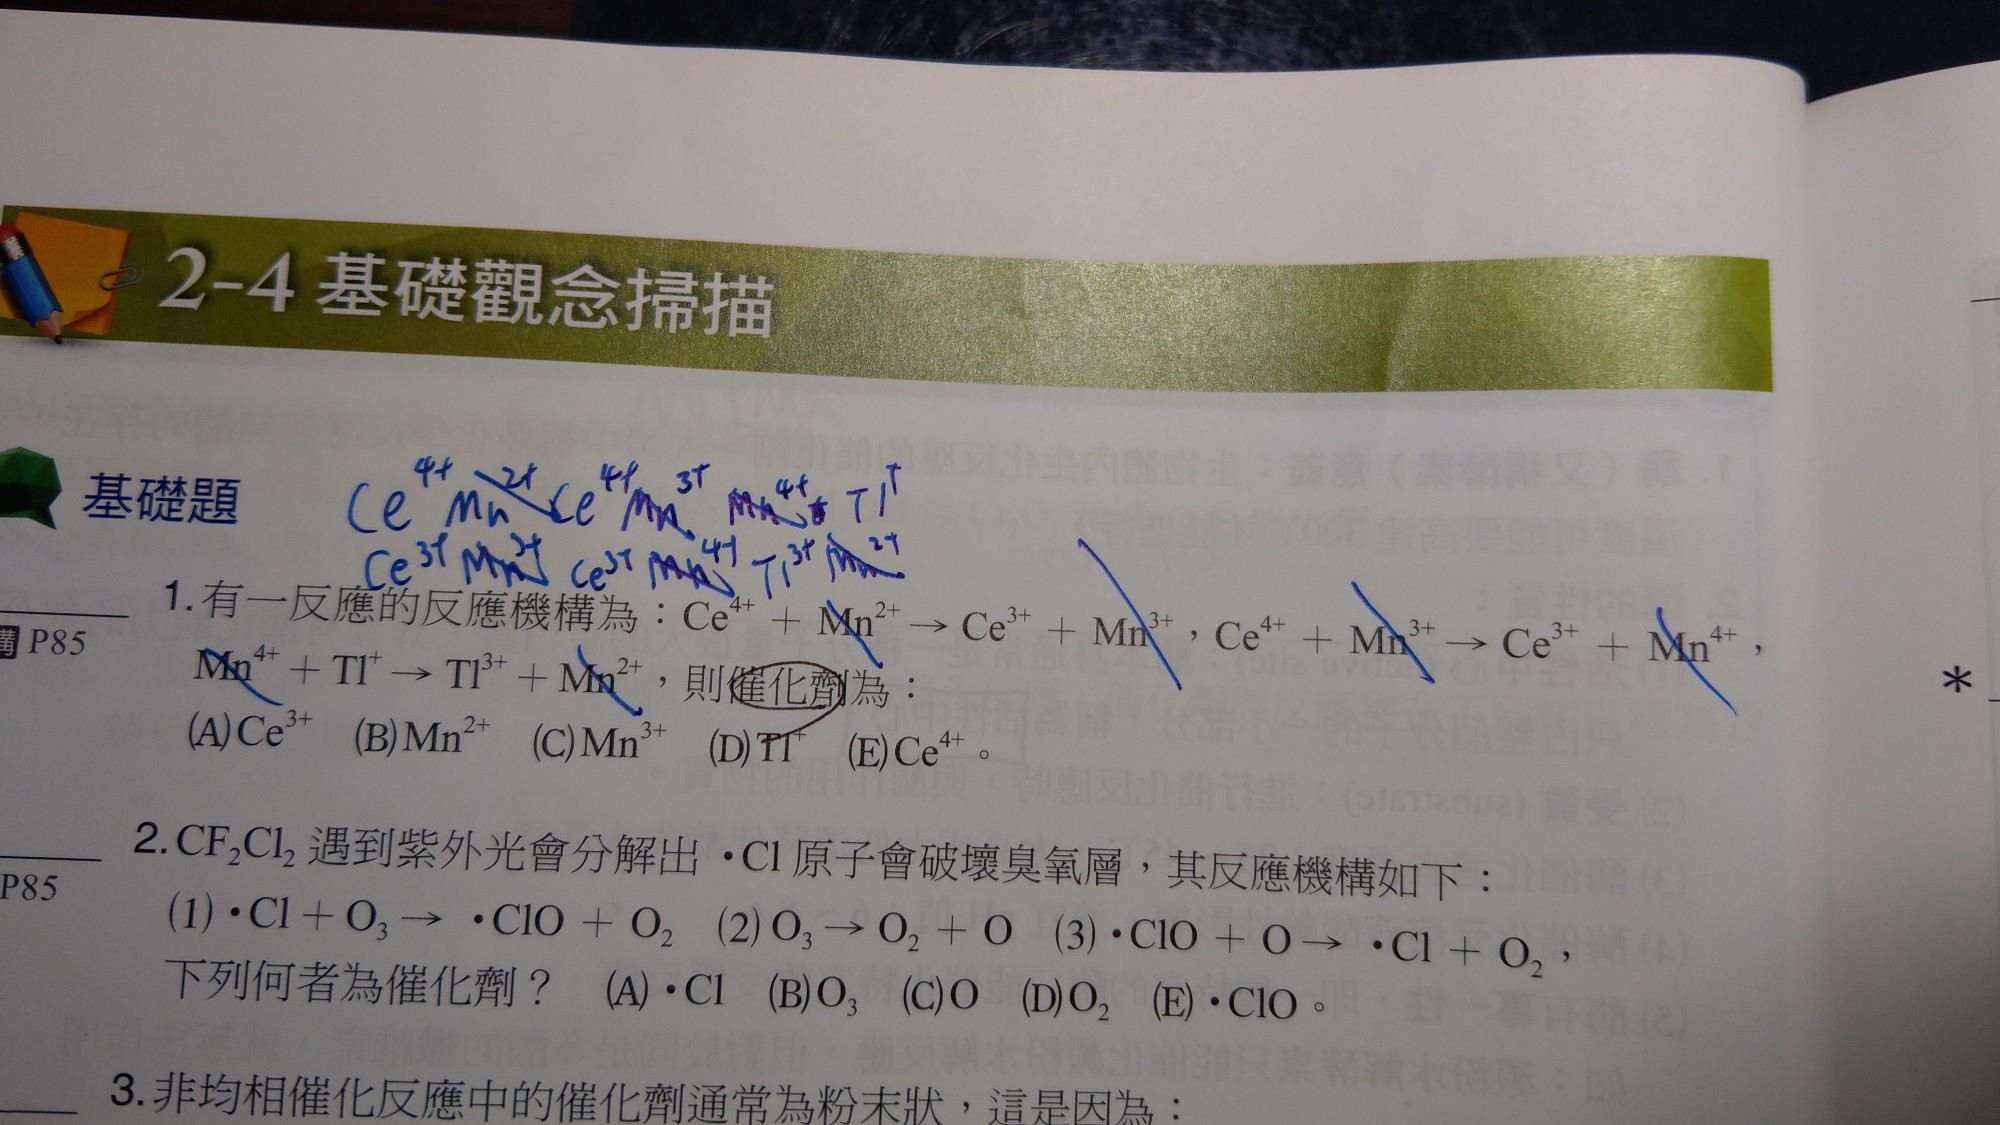 2-4 基礎觀念掃描
基礎題
Ce⁴⁺ Mn²⁺ Ce⁴⁺ Mn³⁺ Mn⁴⁺ Tl⁺
Ce³⁺ Mn³⁺ Ce³⁺ Mn⁴⁺ Tl³⁺ Mn²⁺
1. 有一反應的反應機構為：Ce⁴⁺ + Mn²⁺ → Ce³⁺ + Mn³⁺，Ce⁴⁺ + Mn³⁺ → Ce³⁺ + Mn⁴⁺，
P85
Mn⁴⁺ + Tl⁺ → Tl³⁺ + Mn²⁺，則催化劑為：
(A)Ce³⁺ (B)Mn²⁺ (C)Mn³⁺ (D)Tl⁺ (E)Ce⁴⁺。
*
2. CF₂Cl₂ 遇到紫外光會分解出 •Cl 原子會破壞臭氧層，其反應機構如下：
P85
(1) •Cl + O₃ → •ClO + O₂ (2) O₃ → O₂ + O (3) •ClO + O → •Cl + O₂，
下列何者為催化劑？ (A) •Cl (B)O₃ (C)O (D)O₂ (E) •ClO。
3. 非均相催化反應中的催化劑通常為粉末狀，這是因為：